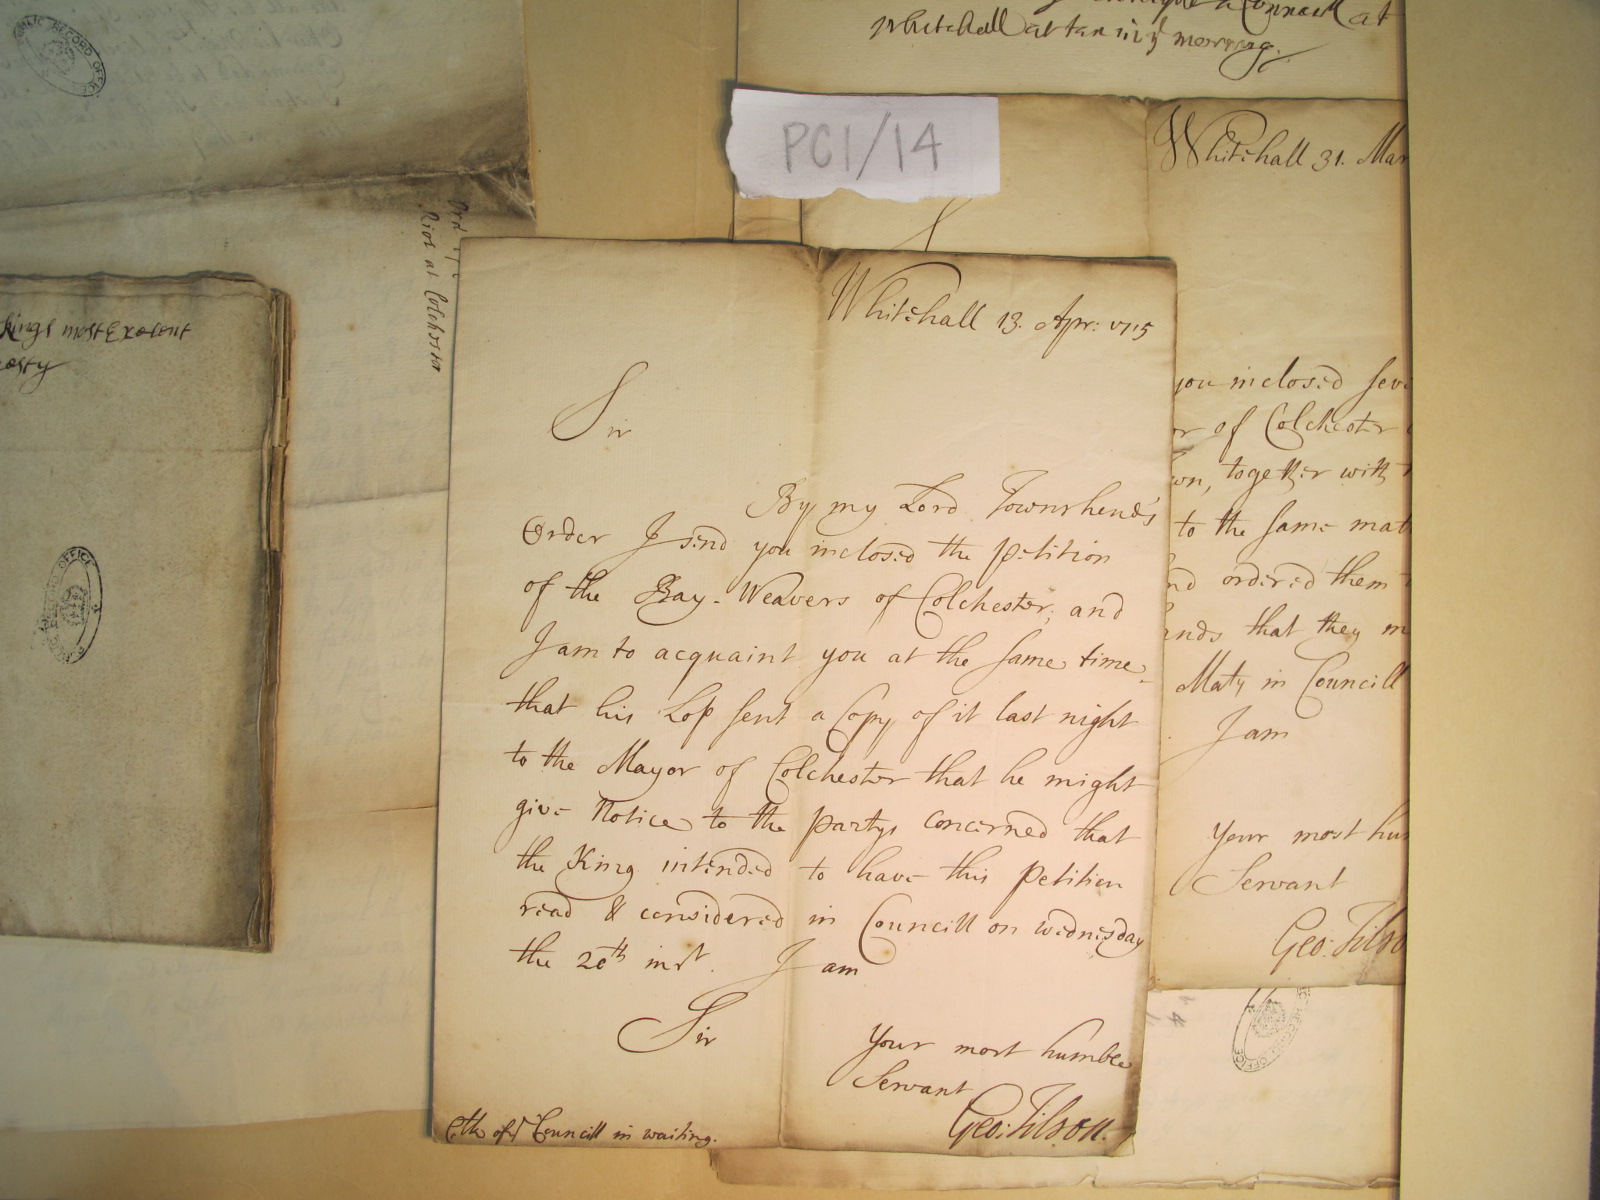 Whitehall at ten in yͤ morning.
PC1/14
Whitehall 31. Mar
Whitehall 13. Apr: 1715
Sir
By my Lord Townshend's
Order I send you inclosed the petition
of the Bay-Weavers of Colchester, and
I am to acquaint you at the same time,
that his Lop sent a Copy of it last night
to the Mayor of Colchester that he might
give Notice to the partys concerned that
the King intended to have this Petition
read & considered in Councill on wednesday
the 20th inst. I am
Sir
Your most humble
Servant
Geo: Tilson.
Clk of yͤ Councill in waiting.
you inclosed
of Colchester
together with
to the same
ordered them
that they
Maty in Councill
I am
Your most
Servant
Geo: Tilso
Riot at Colchester
kings most Excelent
PUBLIC RECORD OFFICE